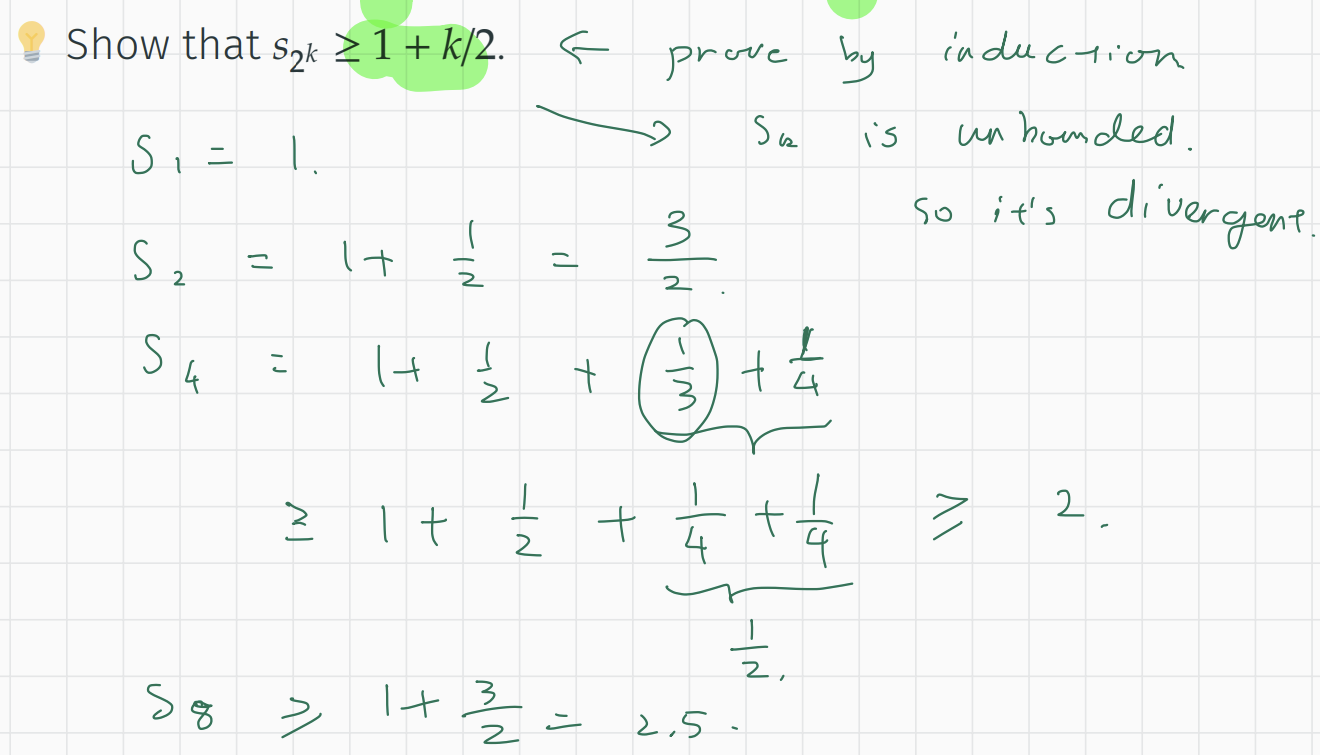 Show that s_{2^k} ≥ 1 + k/2. ← prove by induction
→ S_k is unbounded.
S_1 = 1.
so it's divergent.
S_2 = 1 + 1/2 = 3/2.
S_4 = 1 + 1/2 + 1/3 + 1/4
≥ 1 + 1/2 + 1/4 + 1/4 ≥ 2.
1/2.
S_8 ≥ 1 + 3/2 = 2.5.